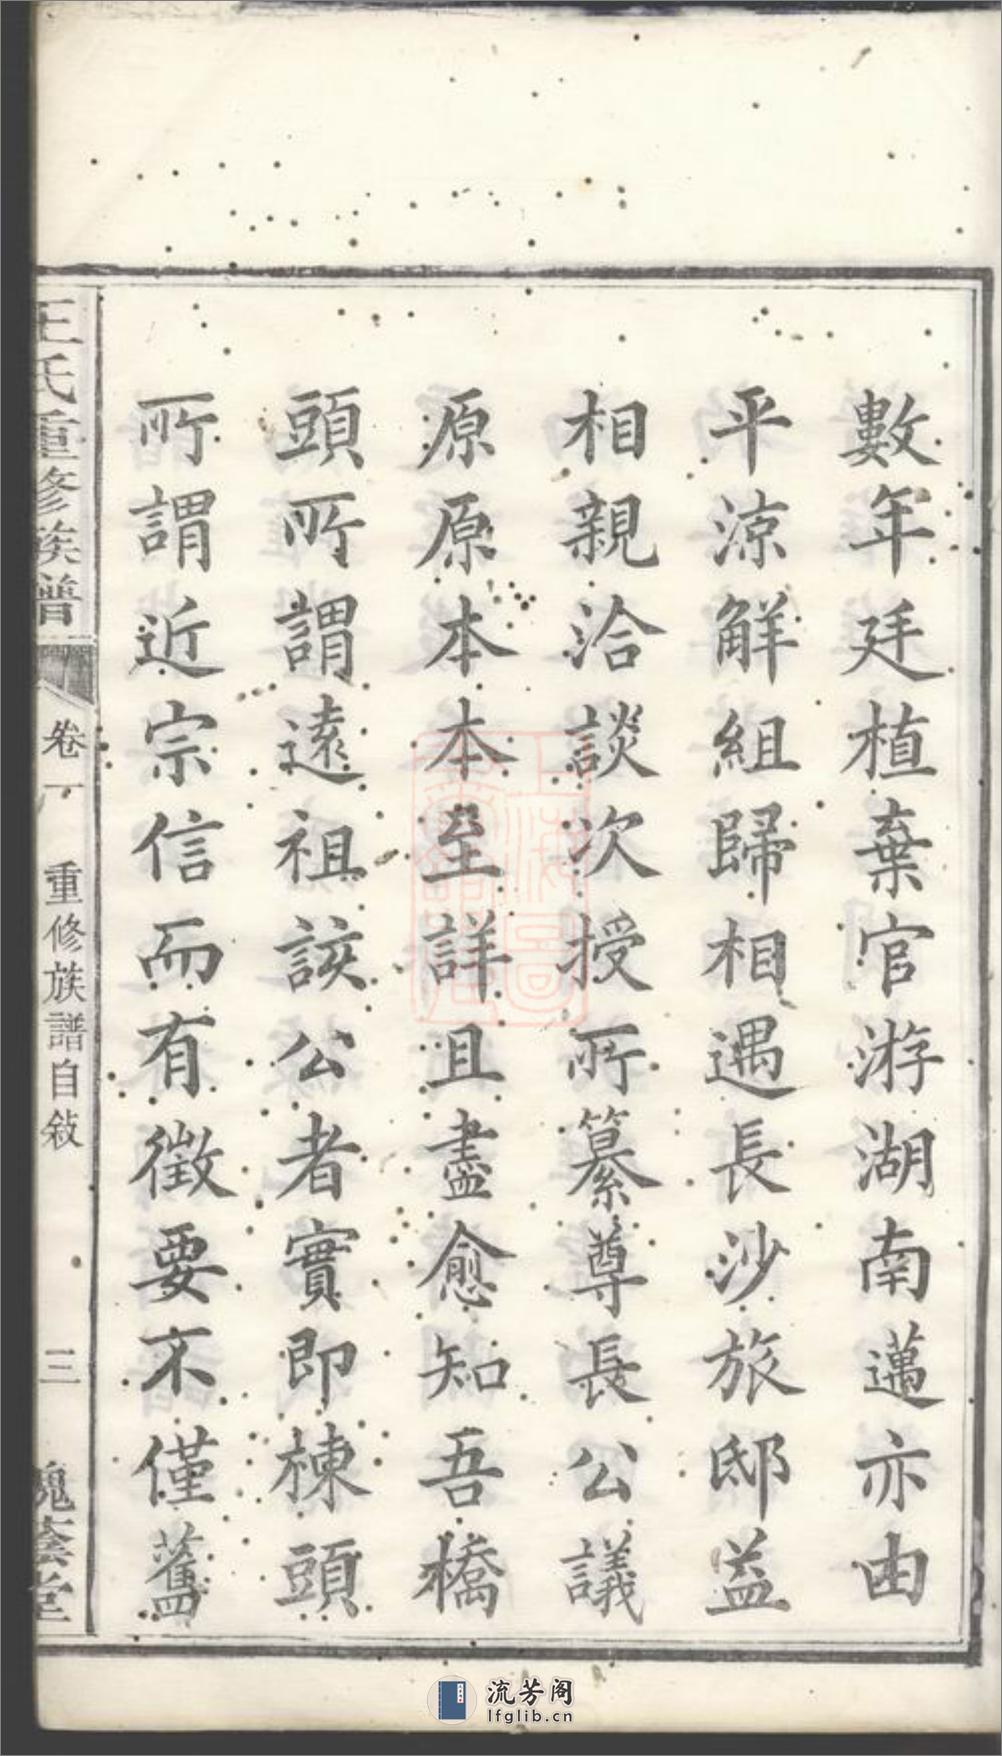 數年廷植棄官游湖南邁亦由
平涼解組歸相遇長沙旅邸益
相親洽談次授所纂尊長公議
原原本本至詳且盡愈知吾橋
頭所謂遠祖該公者實即棟頭
所謂近宗信而有徵要不僅舊
王氏重修族譜 卷一 重修族譜自敍 三 槐蔭堂
流芳阁
lfglib.cn